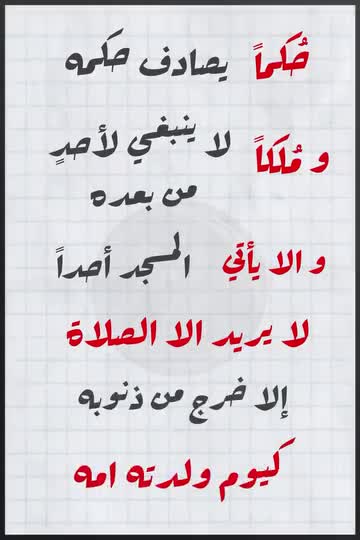 حُكماً يصادف حكمه
و مُلكاً لا ينبغي لأحدٍ
من بعده
و الا يأتي المسجد أحداً
لا يريد الا الصلاة
إلا خرج من ذنوبه
كيوم ولدته امه